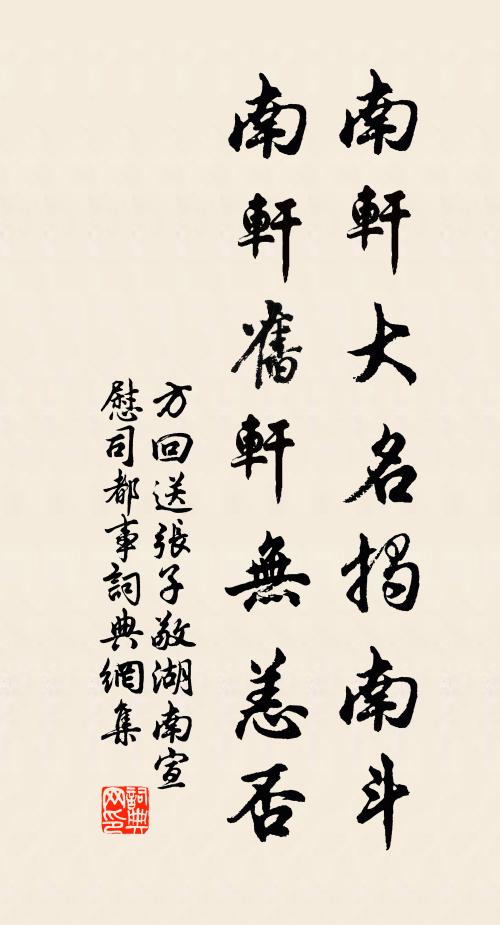 南軒大名揭南斗
南軒舊軒無恙否
方回送張子敬湖南宣
慰司都事詞典網集
詞典
网印